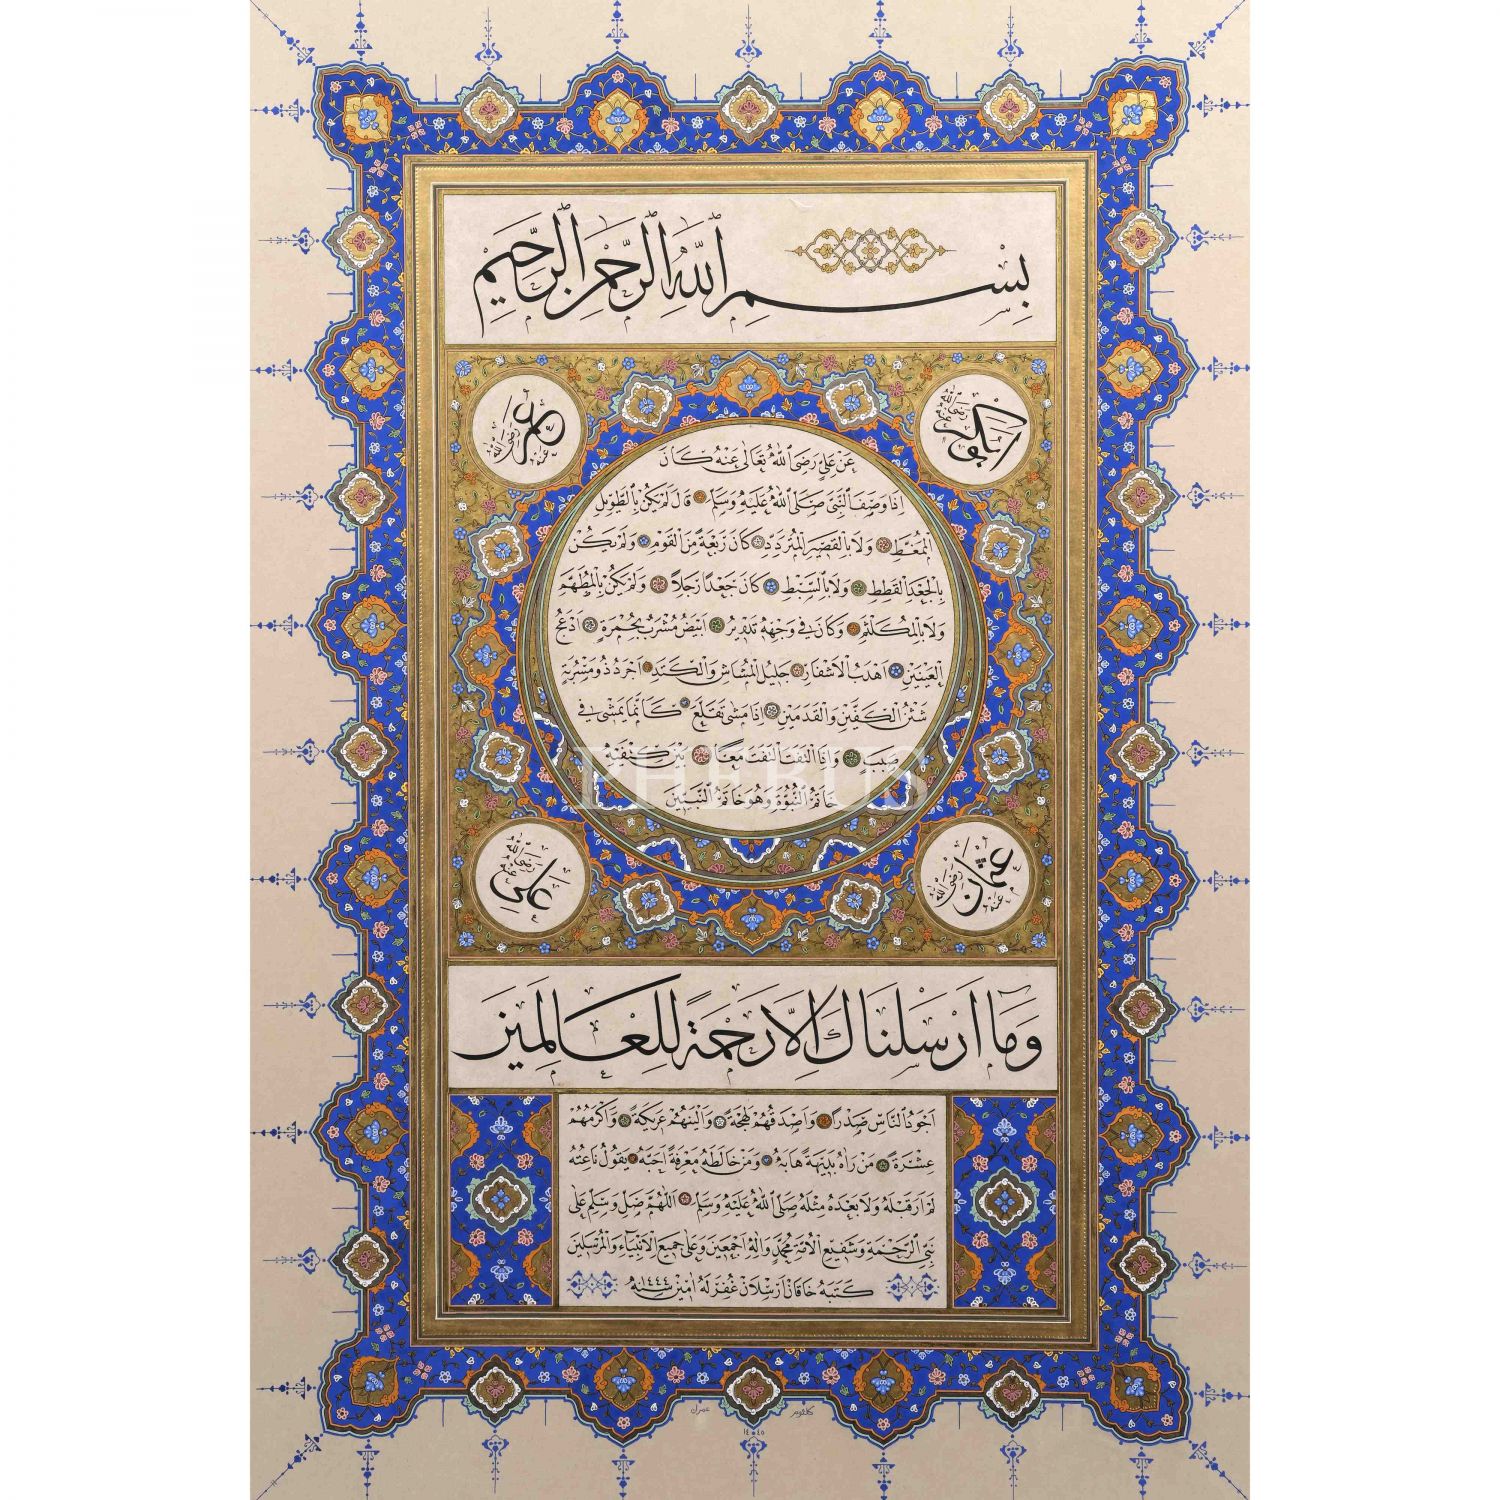 بِسْمِ اللهِ الرَّحْمٰنِ الرَّحِيمِ
ابوبكر رضى الله عنه
عمر رضى الله عنه
عَنْ عَلِيٍّ رَضِىَ اللهُ تَعَالَى عَنْهُ كَانَ
اِذَا وَصَفَ النَّبِىَّ صَلَّى اللهُ عَلَيْهِ وَسَلَّمَ قَالَ لَمْ يَكُنْ بِالطَّوِيلِ
الْمُمَّغِطِ وَلَا بِالْقَصِيرِ الْمُتَرَدِّدِ كَانَ رَبْعَةً مِنَ الْقَوْمِ وَلَمْ يَكُنْ
بِالْجَعْدِ الْقَطِطِ وَلَا بِالسَّبْطِ كَانَ جَعْدًا رَجِلًا وَلَمْ يَكُنْ بِالْمُطَهَّمِ
وَلَا بِالْمُكَلْثَمِ وَكَانَ فِى وَجْهِهِ تَدْوِيرٌ اَبْيَضُ مُشْرَبٌ بِحُمْرَةٍ اَدْعَجُ
الْعَيْنَيْنِ اَهْدَبُ الْاَشْفَارِ جَلِيلُ الْمُشَاشِ وَالْكَتَدِ اَجْرَدُ ذُو مَسْرُبَةٍ
شَثْنُ الْكَفَّيْنِ وَالْقَدَمَيْنِ اِذَا مَشَى تَقَلَّعَ كَاَنَّمَا يَمْشِى فِى
صَبَبٍ وَاِذَا الْتَفَتَ الْتَفَتَ مَعًا بَيْنَ كَتِفَيْهِ
خَاتَمُ النُّبُوَّةِ وَهُوَ خَاتَمُ النَّبِيِّينَ
PHEBUS
عثمان رضى الله عنه
على رضى الله عنه
وَمَا اَرْسَلْنَاكَ اِلَّا رَحْمَةً لِلْعَالَمِينَ
اَجْوَدُ النَّاسِ صَدْرًا وَاَصْدَقُهُمْ لَهْجَةً وَاَلْيَنُهُمْ عَرِيكَةً وَاَكْرَمُهُمْ
عِشْرَةً مَنْ رَاٰهُ بَدِيهَةً هَابَهُ وَمَنْ خَالَطَهُ مَعْرِفَةً اَحَبَّهُ يَقُولُ نَاعِتُهُ
لَمْ اَرَ قَبْلَهُ وَلَا بَعْدَهُ مِثْلَهُ صَلَّى اللهُ عَلَيْهِ وَسَلَّمَ اَللّٰهُمَّ صَلِّ وَسَلِّمْ عَلَى
نَبِىِّ الرَّحْمَةِ وَشَفِيعِ الْاُمَّةِ مُحَمَّدٍ وَاٰلِهِ اَجْمَعِينَ وَعَلَى جَمِيعِ الْاَنْبِيَاءِ وَالْمُرْسَلِينَ
كَتَبَهُ خَاقَان اَرْسْلَان غُفِرَ لَهُ اٰمِين سَنَه ١٤٤٤
عمران
١٤٤٥